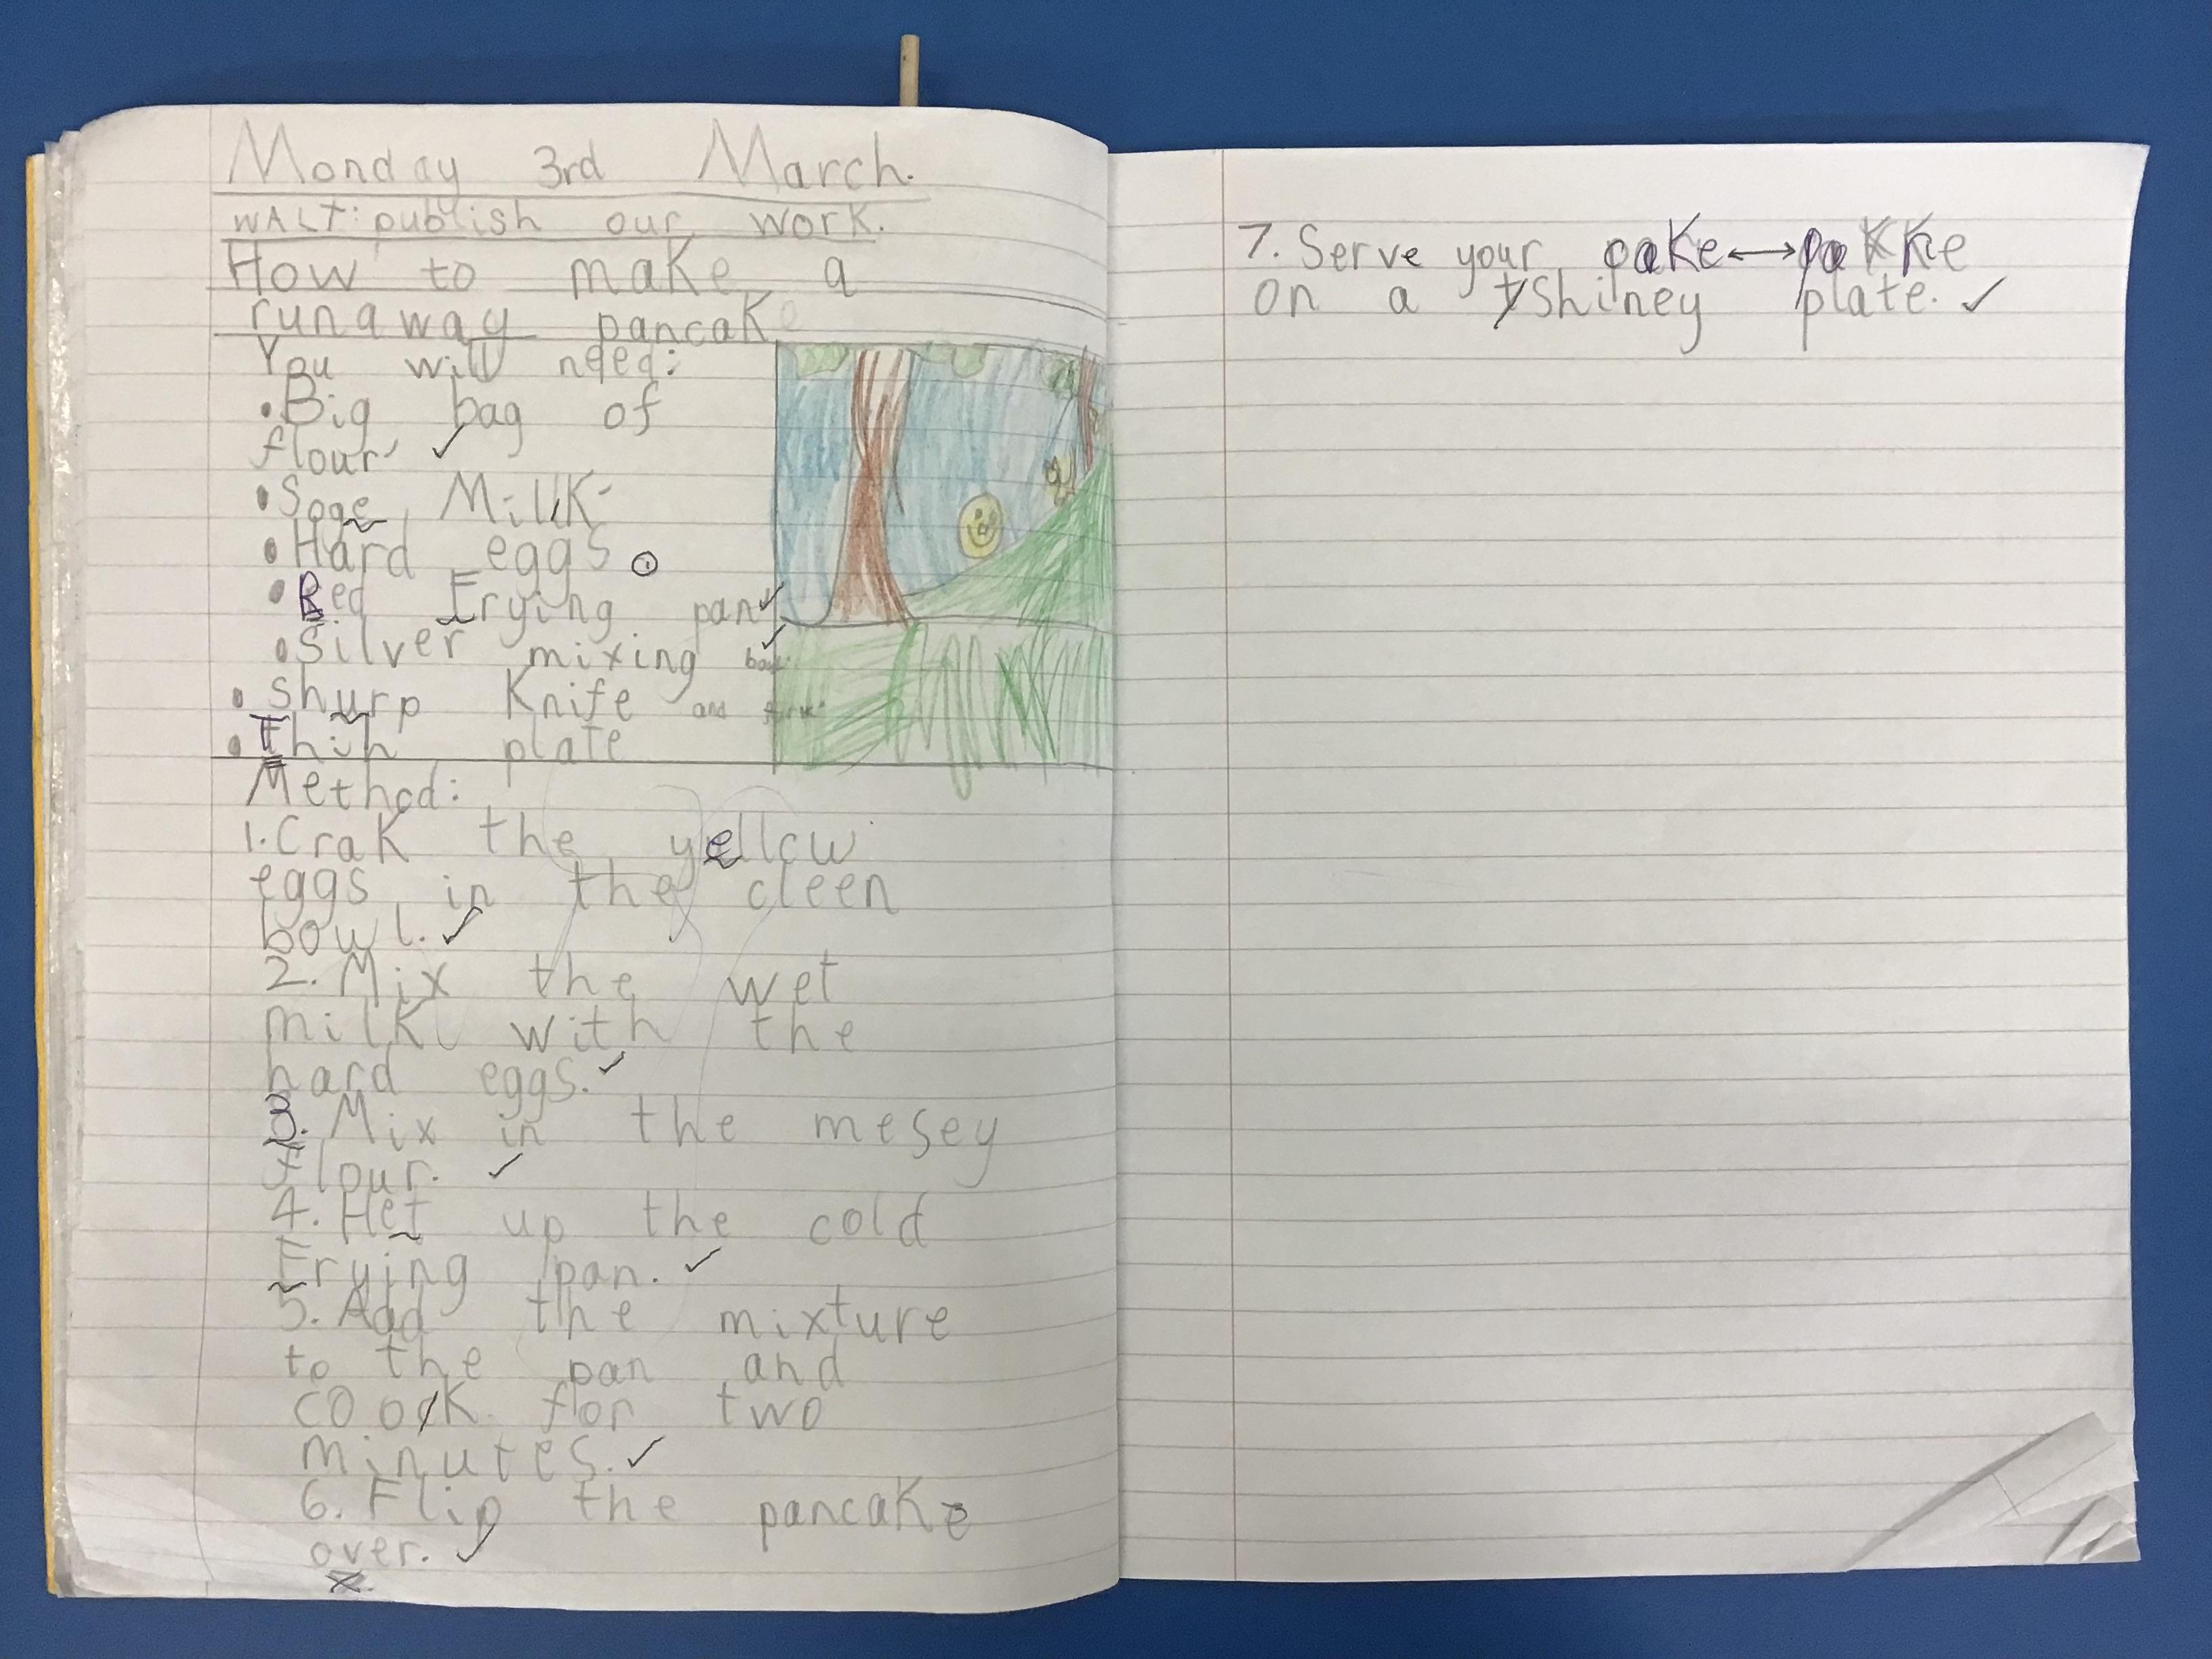 Monday 3rd March.
WALT: publish our work.
How to make a
runaway pancake
You will need:
• Big bag of
flour
• Soge Milk
• Hard eggs
• Red Frying pan
• Silver mixing
• Shurp Knife and fork
• Thin plate
Method:
1. Crak the yellow
eggs in the cleen
bowl.
2. Mix the wet
milk with the
hard eggs.
3. Mix in the mesey
flour.
4. Het up the cold
Frying pan.
5. Add the mixture
to the pan and
cook for two
minutes.
6. Flip the pancake
over.
7. Serve your cake
on a Shiney plate.